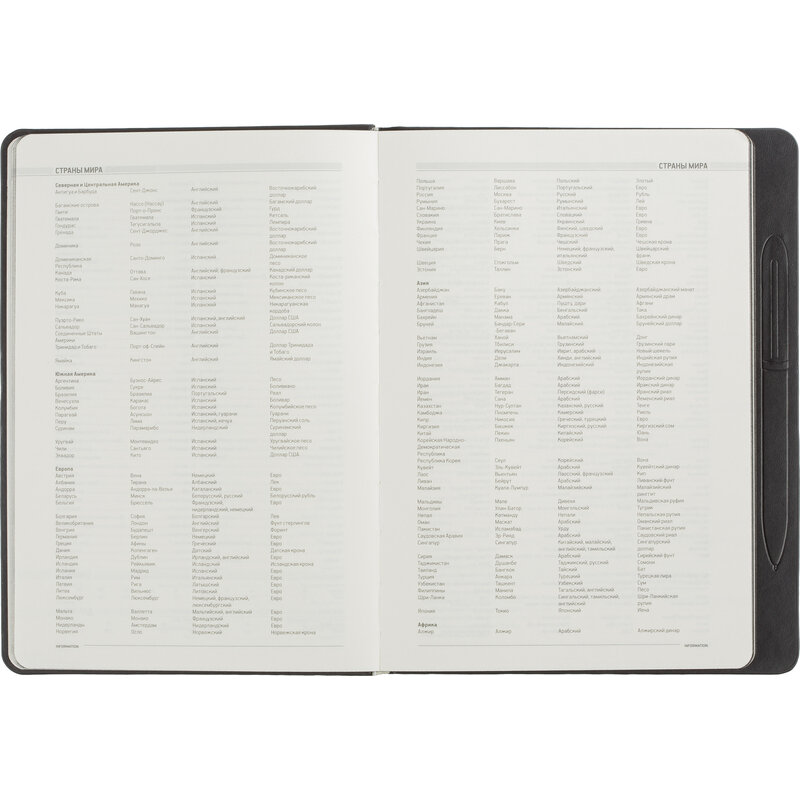 СТРАНЫ МИРА
Северная и Центральная Америка
Антигуа и Барбуда Сент-Джонс Английский Восточнокарибский
доллар
Багамские острова Нассо (Нассау) Английский Багамский доллар
Гаити Порт-о-Пренс Французский Гурд
Гватемала Гватемала Испанский Кетсель
Гондурас Тегусигальпа Испанский Лемпира
Гренада Сент Джорджес Английский Восточнокарибский
доллар
Доминика Розо Английский Восточнокарибский
доллар
Доминиканская Санто-Доминго Испанский Доминиканское
Республика песо
Канада Оттава Английский, французский Канадский доллар
Коста-Рика Сан-Хосе Испанский Коста-риканский
колон
Куба Гавана Испанский Кубинское песо
Мексика Мехико Испанский Мексиканское песо
Никарагуа Манагуа Испанский Никарагуанская
кордоба
Пуэрто-Рико Сан-Хуан Испанский, английский Доллар США
Сальвадор Сан-Сальвадор Испанский Сальвадорский колон
Соединенные Штаты Вашингтон Английский Доллар США
Америки
Тринидад и Тобаго Порт-оф-Спейн Английский Доллар Тринидада
и Тобаго
Ямайка Кингстон Английский Ямайский доллар
Южная Америка
Аргентина Буэнос-Айрес Испанский Песо
Боливия Сукре Испанский Боливиано
Бразилия Бразилиа Португальский Реал
Венесуэла Каракас Испанский Боливар
Колумбия Богота Испанский Колумбийское песо
Парагвай Асунсьон Испанский, гуарани Гуарани
Перу Лима Испанский, кечуа Перуанский соль
Суринам Парамарибо Нидерландский Суринамский
доллар
Уругвай Монтевидео Испанский Уругвайское песо
Чили Сантьяго Испанский Чилийское песо
Эквадор Кито Испанский Доллар США
Европа
Австрия Вена Немецкий Евро
Албания Тирана Албанский Лек
Андорра Андорра-ла-Велья Каталанский Евро
Беларусь Минск Белорусский, русский Белорусский рубль
Бельгия Брюссель Французский, Евро
нидерландский, немецкий
Болгария София Болгарский Лев
Великобритания Лондон Английский Фунт стерлингов
Венгрия Будапешт Венгерский Форинт
Германия Берлин Немецкий Евро
Греция Афины Греческий Евро
Дания Копенгаген Датский Датская крона
Ирландия Дублин Ирландский, английский Евро
Исландия Рейкьявик Исландский Исландская крона
Испания Мадрид Испанский Евро
Италия Рим Итальянский Евро
Латвия Рига Латышский Евро
Литва Вильнюс Литовский Евро
Люксембург Люксембург Немецкий, французский, Евро
люксембургский
Мальта Валлетта Мальтийский, английский Евро
Монако Монако Французский Евро
Нидерланды Амстердам Нидерландский Евро
Норвегия Осло Норвежский Норвежская крона
INFORMATION
СТРАНЫ МИРА
Польша Варшава Польский Злотый
Португалия Лиссабон Португальский Евро
Россия Москва Русский Рубль
Румыния Бухарест Румынский Лей
Сан-Марино Сан-Марино Итальянский Евро
Словакия Братислава Словацкий Евро
Украина Киев Украинский Гривна
Финляндия Хельсинки Финский, шведский Евро
Франция Париж Французский Евро
Чехия Прага Чешский Чешская крона
Швейцария Берн Немецкий, французский, Швейцарский
итальянский франк
Швеция Стокгольм Шведский Шведская крона
Эстония Таллин Эстонский Евро
Азия
Азербайджан Баку Азербайджанский Азербайджанский манат
Армения Ереван Армянский Армянский драм
Афганистан Кабул Пушту, дари Афгани
Бангладеш Дакка Бенгальский Така
Бахрейн Манама Арабский Бахрейнский динар
Бруней Бандар-Сери- Малайский Брунейский доллар
Бегаван
Вьетнам Ханой Вьетнамский Донг
Грузия Тбилиси Грузинский Грузинский лари
Израиль Иерусалим Иврит, арабский Новый шекель
Индия Дели Хинди, английский Индийская рупия
Индонезия Джакарта Индонезийский Индонезийская
рупия
Иордания Амман Арабский Иорданский динар
Ирак Багдад Арабский Иракский динар
Иран Тегеран Персидский (фарси) Иранский риал
Йемен Сана Арабский Йеменский риал
Казахстан Нур-Султан Казахский, русский Тенге
Камбоджа Пномпень Кхмерский Риель
Кипр Никосия Греческий, турецкий Евро
Киргизия Бишкек Киргизский, русский Киргизский сом
Китай Пекин Китайский Юань
Корейская Народно- Пхеньян Корейский Вона
Демократическая
Республика
Республика Корея Сеул Корейский Вона
Кувейт Эль-Кувейт Арабский Кувейтский динар
Лаос Вьентьян Лаосский, французский Кип
Ливан Бейрут Арабский Ливанский фунт
Малайзия Куала-Лумпур Малайский Малайзийский
ринггит
Мальдивы Мале Дивехи Мальдивская руфия
Монголия Улан-Батор Монгольский Тугрик
Непал Катманду Непали Непальская рупия
Оман Маскат Арабский Оманский риал
Пакистан Исламабад Урду Пакистанская рупия
Саудовская Аравия Эр-Рияд Арабский Саудовский риял
Сингапур Сингапур Китайский, малайский, Сингапурский
английский, тамильский доллар
Сирия Дамаск Арабский Сирийский фунт
Таджикистан Душанбе Таджикский, русский Сомони
Таиланд Бангкок Тайский Бат
Турция Анкара Турецкий Турецкая лира
Узбекистан Ташкент Узбекский Сум
Филиппины Манила Тагальский, английский Песо
Шри-Ланка Коломбо Сингальский, тамильский, Шри-Ланкийская
английский рупия
Япония Токио Японский Йена
Африка
Алжир Алжир Арабский Алжирский динар
INFORMATION